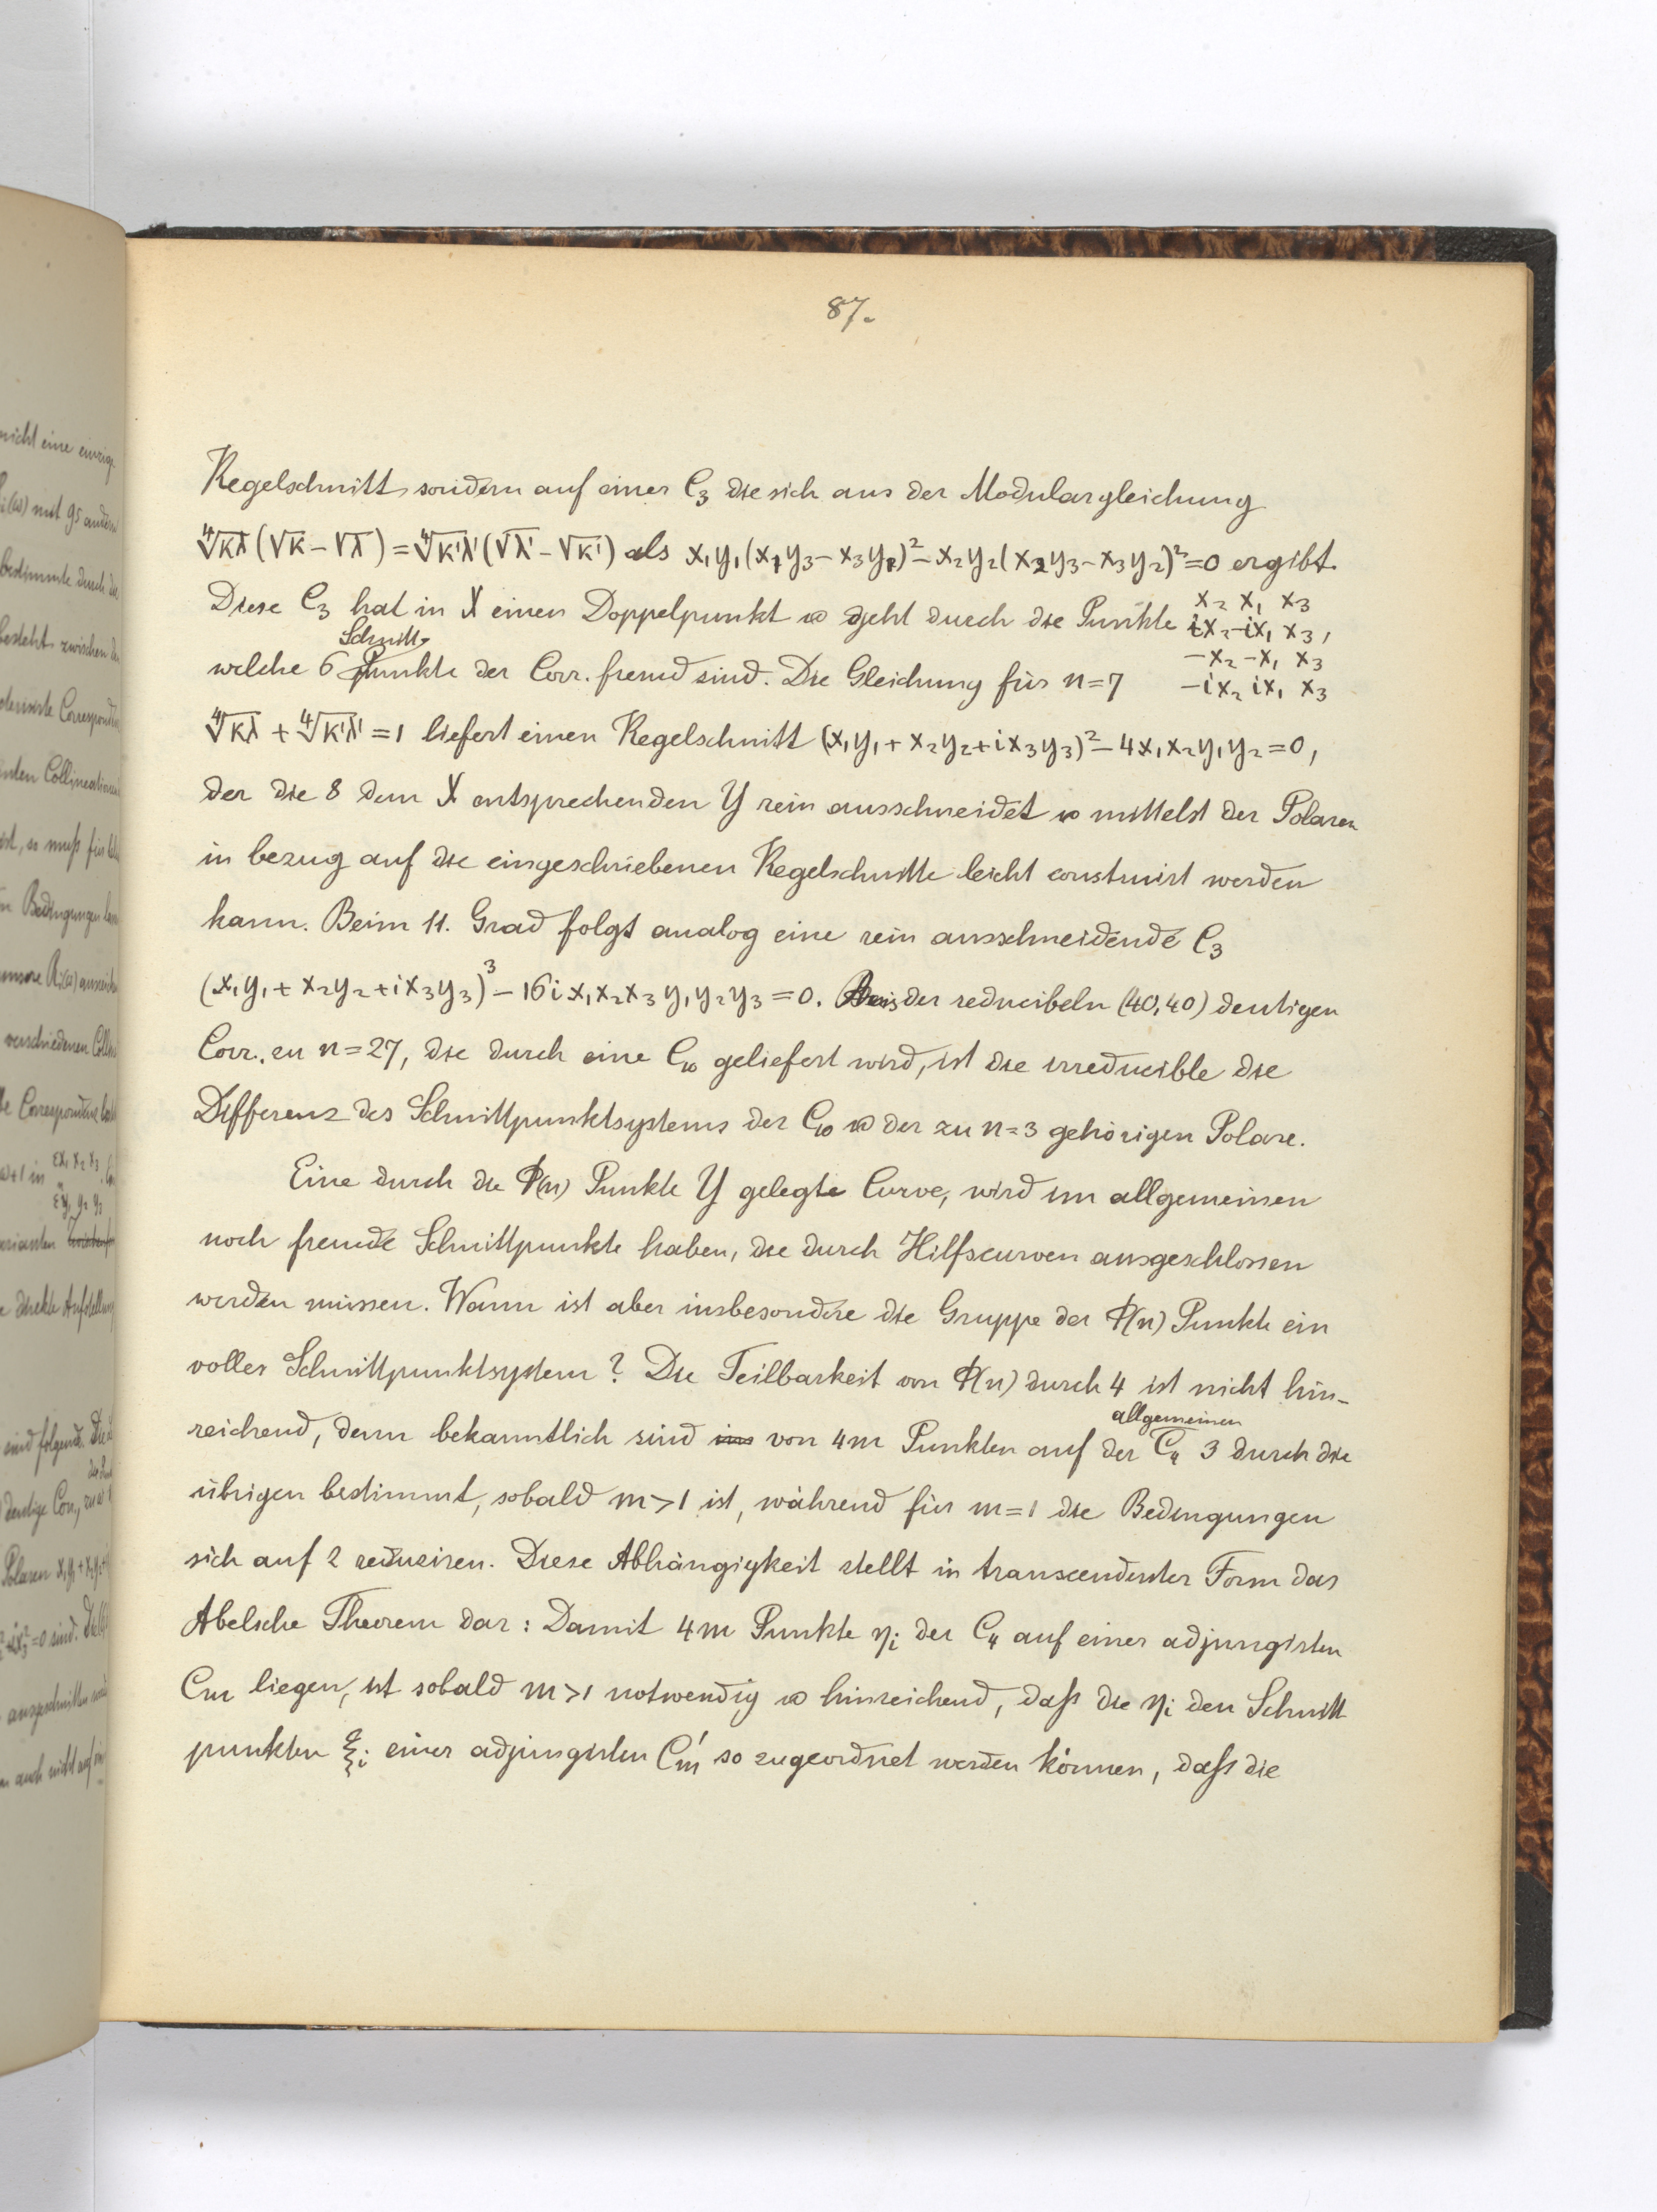 87.
Kegelschnitt, sondern auf einer C₃ die sich aus der Modulargleichung
∜κλ (√κ − √λ) = ∜κ'λ' (√λ' − √κ') als x₁y₁(x₁y₃−x₃y₁)² − x₂y₂(x₂y₃−x₃y₂)² = 0 ergibt.
Diese C₃ hat in X einen Doppelpunkt u geht durch die Punkte x₂ x₁ x₃
ix₂ −ix₁ x₃,
−x₂ −x₁ x₃
−ix₂ ix₁ x₃
welche 6 Schnittpunkte der Corr. fremd sind. Die Gleichung für n=7
∜κλ + ∜κ'λ' = 1 liefert einen Kegelschnitt (x₁y₁ + x₂y₂ + ix₃y₃)² − 4x₁x₂y₁y₂ = 0,
der die 8 dem X entsprechenden Y rein ausschneidet u mittelst der Polaren
in bezug auf die eingeschriebenen Kegelschnitte leicht construirt werden
kann. Beim 11. Grad folgt analog eine rein ausschneidende C₃
(x₁y₁ + x₂y₂ + ix₃y₃)³ − 16i x₁x₂x₃ y₁y₂y₃ = 0. Aus der reducibeln (40,40) deutigen
Corr. zu n=27, die durch eine C₁₀ geliefert wird, ist die irreducible die
Differenz des Schnittpunktsystems der C₁₀ u der zu n=3 gehörigen Polare.
Eine durch die Φ(n) Punkte Y gelegte Curve, wird im allgemeinen
noch fremde Schnittpunkte haben, die durch Hilfscurven ausgeschlossen
werden müssen. Wann ist aber insbesondere die Gruppe der Φ(n) Punkte ein
volles Schnittpunktsystem? Die Teilbarkeit von Φ(n) durch 4 ist nicht hin-
reichend, denn bekanntlich sind von 4m Punkten auf der allgemeinen C₄ 3 durch die
übrigen bestimmt, sobald m>1 ist, während für m=1 die Bedingungen
sich auf 2 reduziren. Diese Abhängigkeit stellt in transcendenter Form das
Abelsche Theorem dar: Damit 4m Punkte ηᵢ der C₄ auf einer adjungirten
Cm liegen, ist sobald m>1 notwendig u hinreichend, daß die ηᵢ den Schnitt
punkten ξᵢ einer adjungirten C'm so zugeordnet werden können, daß die